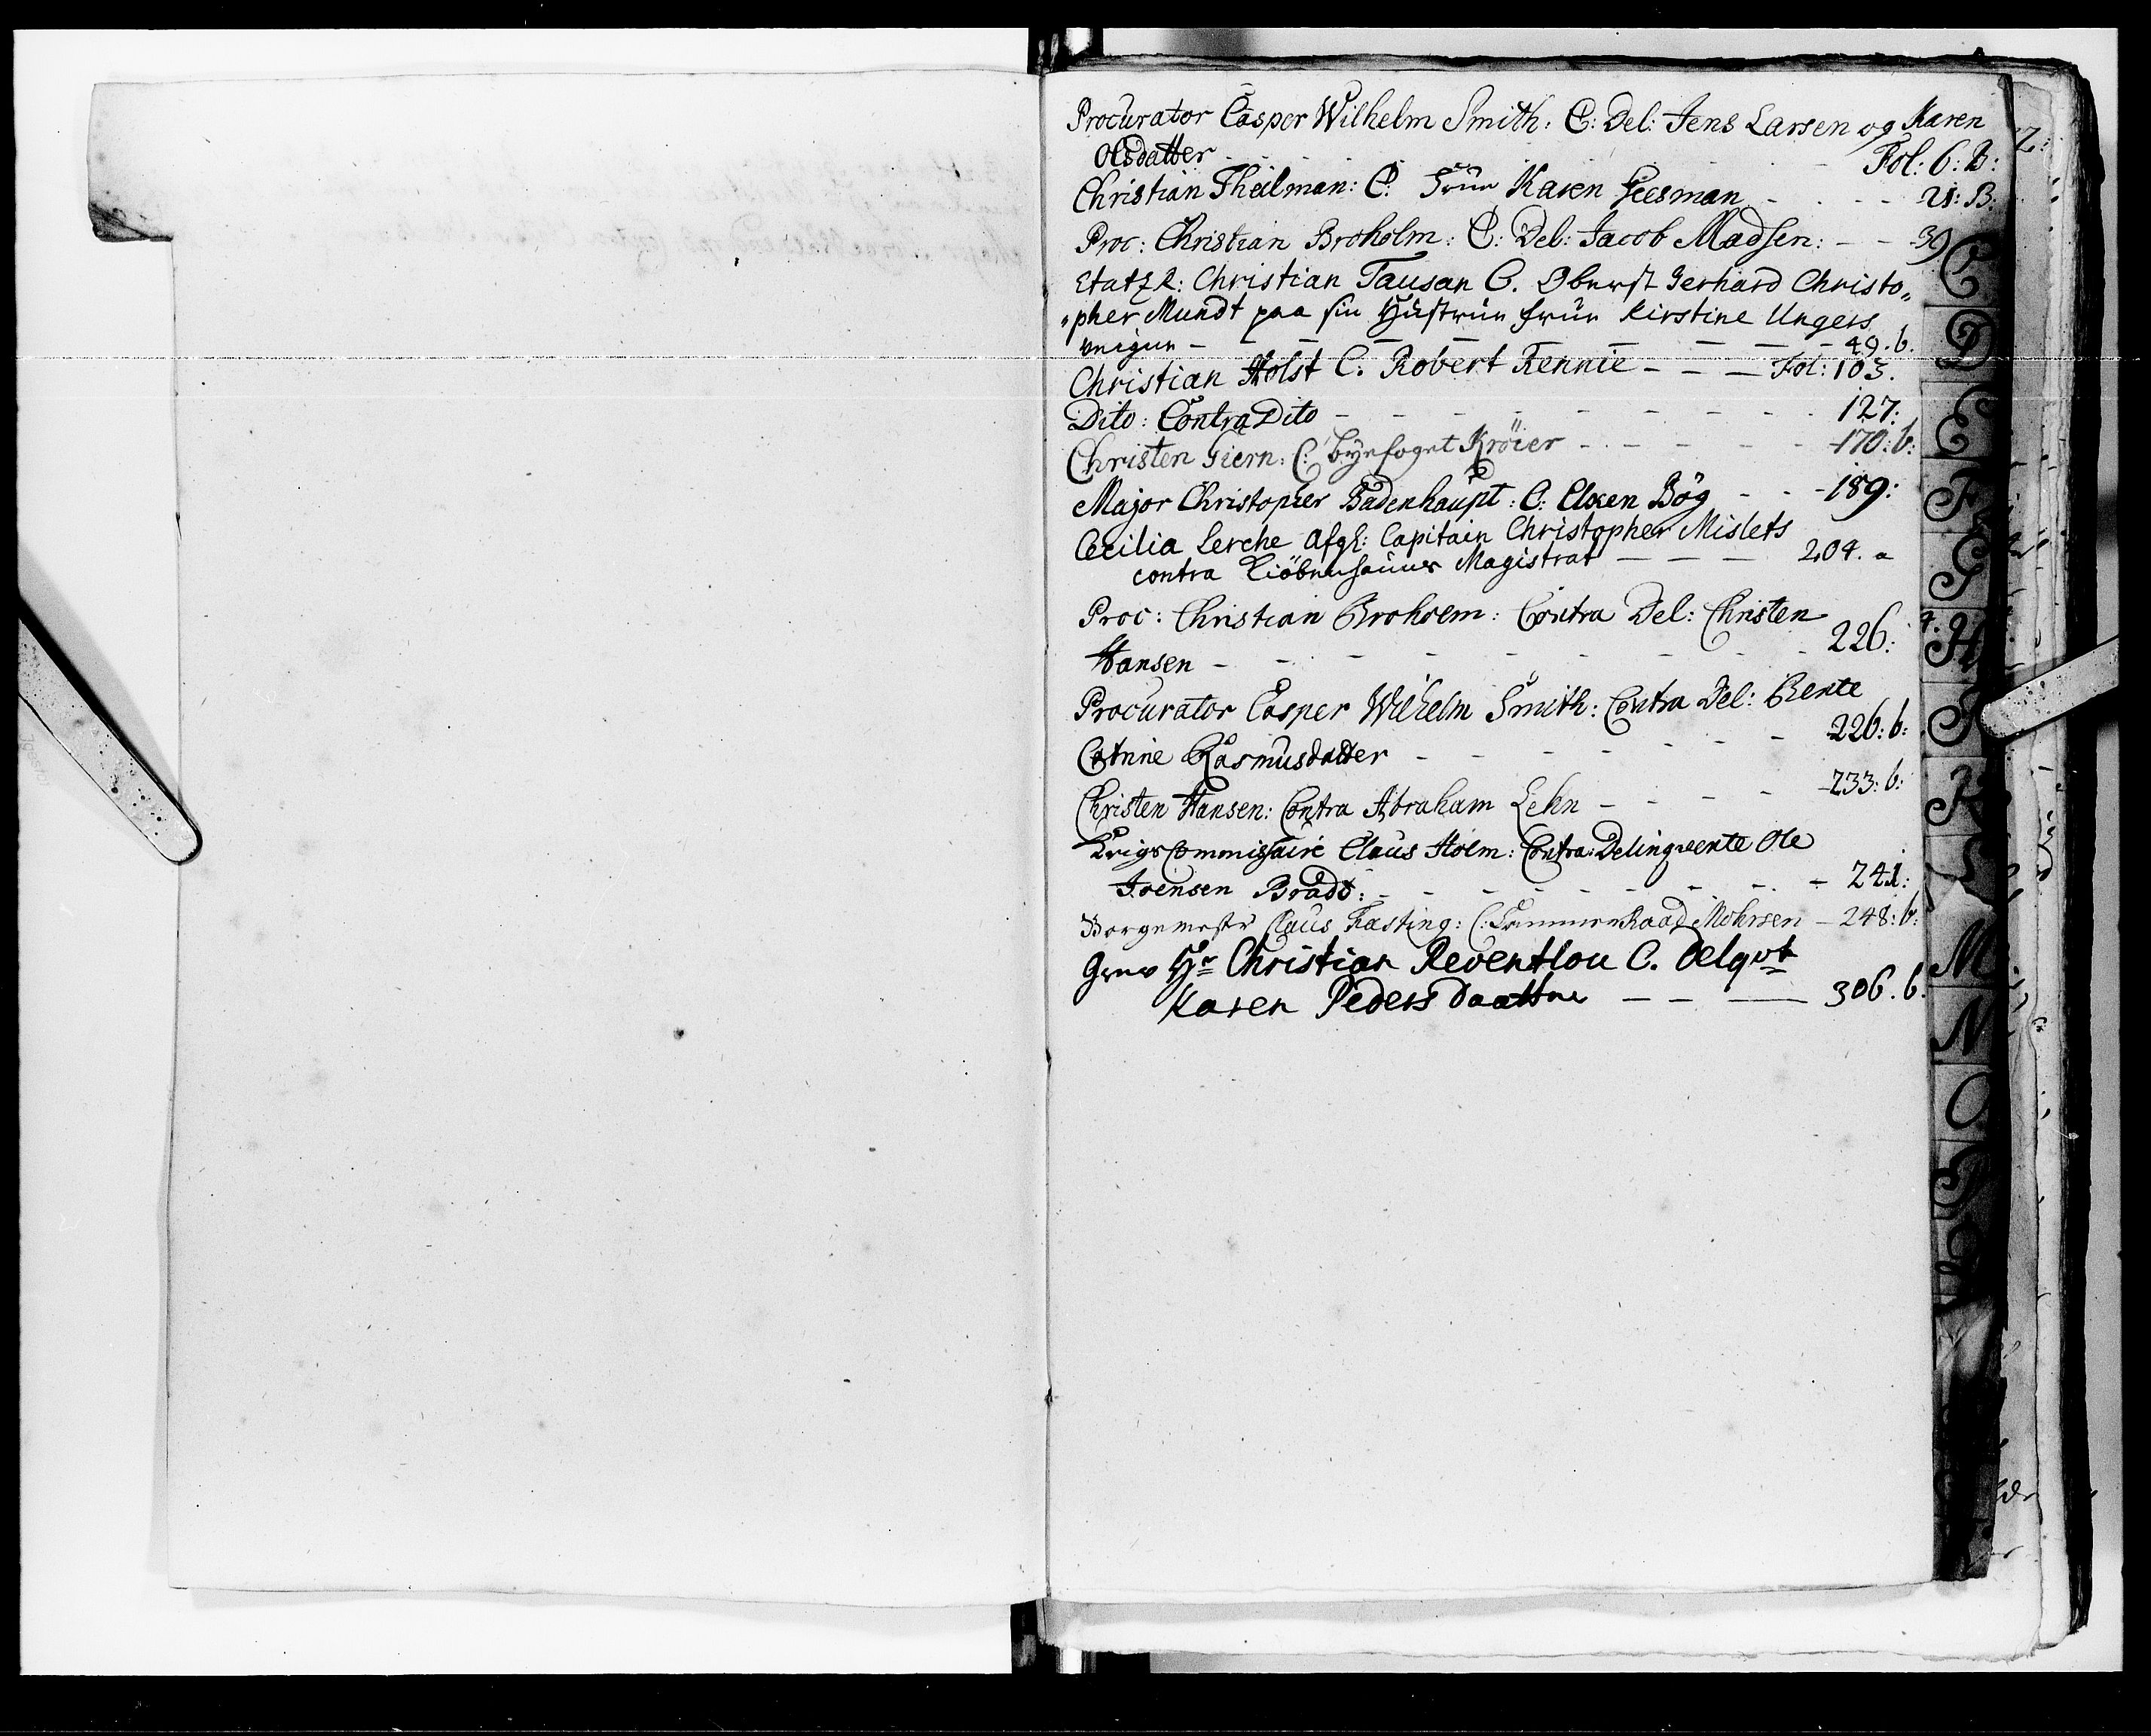 Procurator Casper Wilhelm Smith: C: Del: Jens Larsen og Karen
Olsdatter - - - Fol: 6: B:
Christian Theilman: C: Frue Karen Heesman - - - - 21: B.
Proc: Christian Broholm: C: Del: Jacob Madsen: - - 39
EtatzR: Christian Tausan C. Oberst Gerhard Christo„
„pher Mundt paa sin Hustrue Frue Kirstine Ungers
veigne - - - - - - - - 49. b.
Christian Holst C. Robert Rennie - - - Fol: 103.
Dito: Contra Dito - - - - - - - - - 127:
Christen Giern: C: Byefoget Kröier - - - - - - 170: b:
Major Christopher Badenhaupt: C: Elsen Bög - - - 189:
Cecilia Lerche Afgl: Capitain Christopher Mislets
contra Kiöbenhauns Magistrat - - - 204. a
Proc: Christian Broholm: Contra Del: Christen
Hansen - - - - - - - - - 226:
Procurator Casper Wilhelm Smith: Contra Del: Bente
Catrine Rasmusdatter - - - - - - 226: b:
Christen Hansen: Contra Abraham Lehn - - - - 233: b:
KrigsCommissaire Claus Holm: Contra: Delinqvente Ole
Joensen Bradt: - - - - - - - - 241:
Borgemester Claus Fasting: C: CammerRaad Mohrsen - 248: b:
Grev Hr Christian Reventlou C. Delqvt
Karen Pedersdaatter - - - 306. b.
C
D
E
F
G
H
I
K
L
M
N
O
P